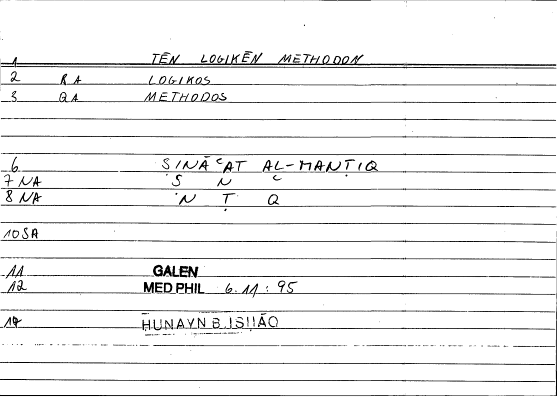 1 TĒN LOGIKĒN METHODON
2 RA LOGIKOS
3 QA METHODOS
6 ṢINĀʿAT AL-MANṬIQ
7 NA Ṣ N ʿ
8 NA N Ṭ Q
10 SA
11 GALEN
12 MED PHIL 6.11 : 95
14 ḤUNAYN B. ISḤĀQ